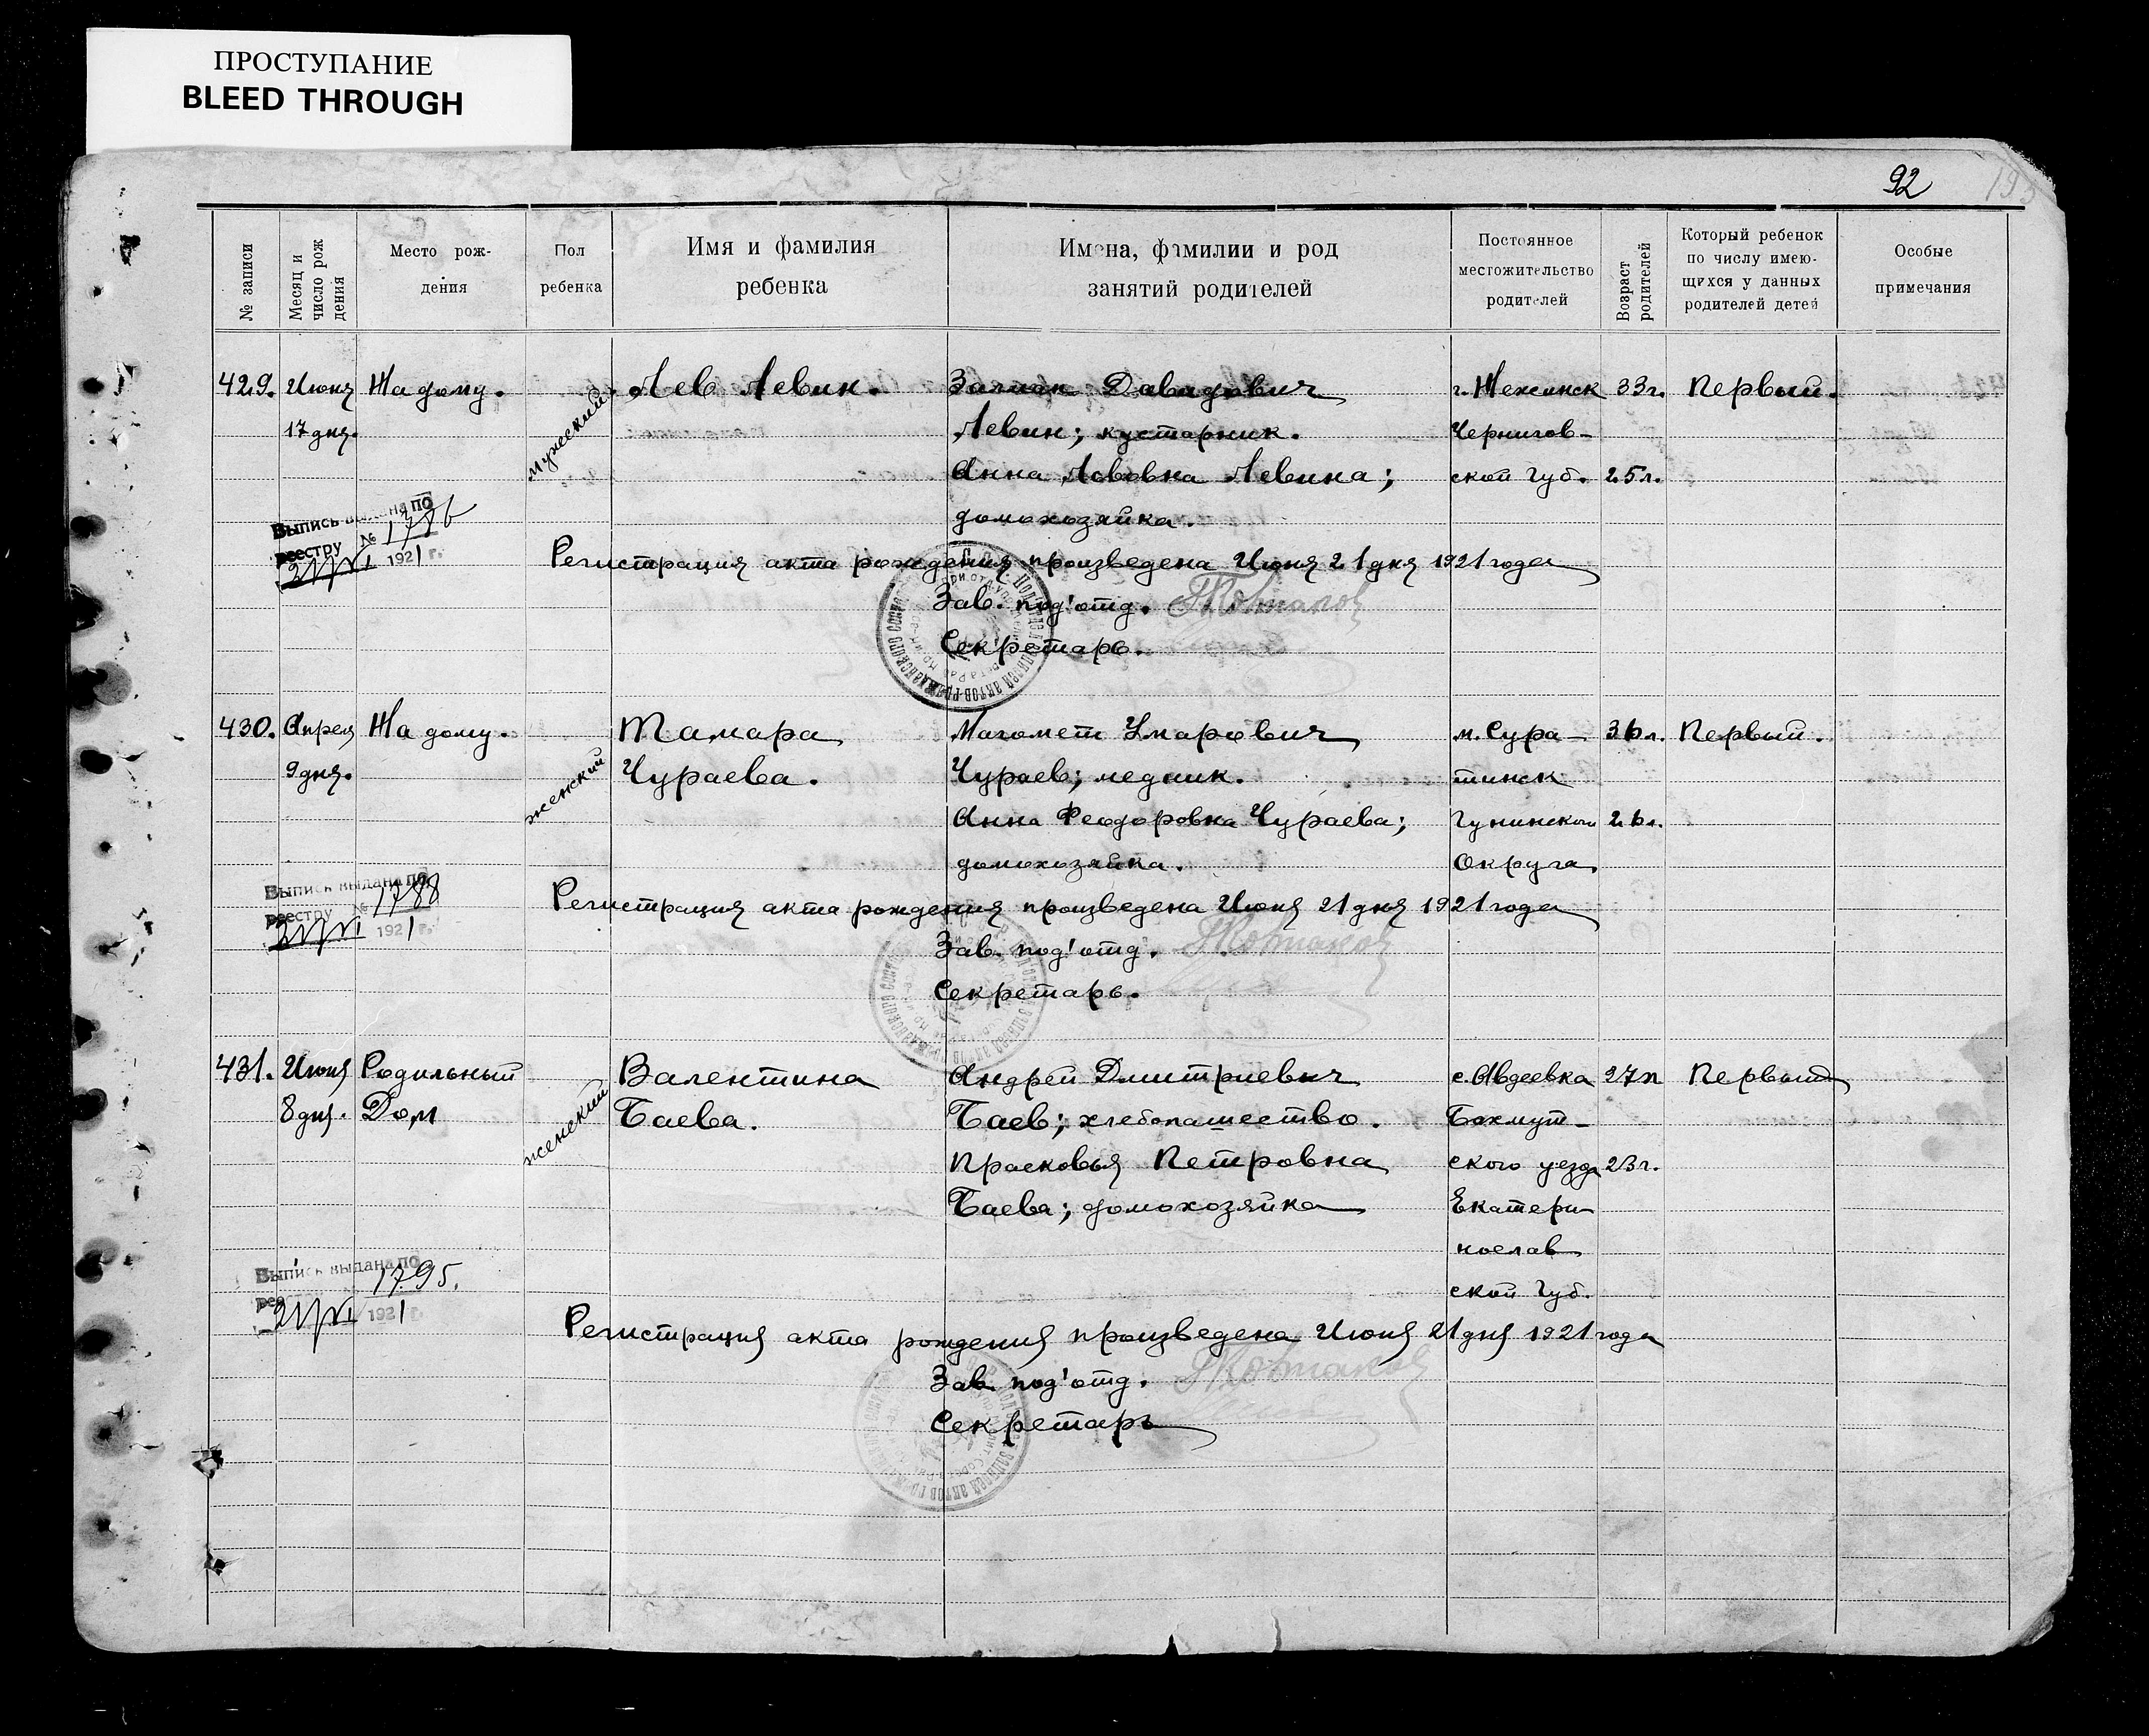 ПРОСТУПАНИЕ
BLEED THROUGH
92
№ записи
Месяц и число рождения
Место рож-
дения
Пол
ребенка
Имя и фамилия
ребенка
Имена, фамилии и род
занятий родителей
Постоянное
местожительство
родителей
Возраст
родителей
Который ребенок
по числу имею-
щихся у данных
родителей детей
Особые
примечания
429. Июня На дому. мужеский Лев Левин. Залман Давидович г. Нежинск 33г. Первый.
17 дня. Левин; кустарник. Чернигов-
Анна Львовна Левина; ской Губ. 25л.
домохозяйка.
Выпись выдана по
реестру № 1786
21/VI 1921 г.
Регистрация акта рождения произведена Июня 21 дня 1921 года
Зав. под'отд.
Секретарь.
430. Апреля На дому. женский Тамара Магомет Умарович м. Сура- 36л. Первый.
9 дня. Чураева. Чураев; медник. тинск
Анна Феодоровна Чураева; Гунинского 26л.
домохозяйка. Округа
Выпись выдана по
реестру № 1788
21/VI 1921 г.
Регистрация акта рождения произведена Июня 21 дня 1921 года
Зав. под'отд.
Секретарь.
431. Июня Родильный женский Валентина Андрей Дмитриевич с. Авдеевка 27л Первый
8 дня. Дом Баева. Баев; хлебопашество. Бахмут-
Прасковья Петровна ского уезда 23г.
Баева; домохозяйка Екатери
нослав
ской Губ.
Выпись выдана по
1795.
21/VI 1921 г.
Регистрация акта рождения произведена Июня 21 дня 1921 года
Зав под'отд.
Секретарь